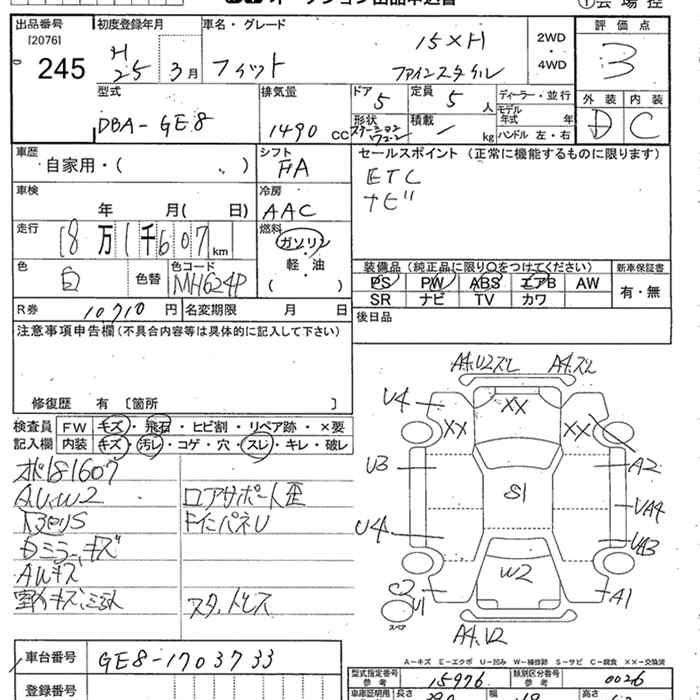 オークション出品申込書
①会場控
出品番号 初度登録年月 車名・グレード 評価点
[2076]
245
H
25 3月 フィット
15×H
ファインスタイル
2WD
・
4WD
3
外装 内装
D C
型式 排気量 ドア 定員 ディーラー・並行
DBA-GE8 1490 cc 5 5 人
モデル年式 年
形状 ステーションワゴン 積載 / kg ハンドル 左・右
車歴 シフト セールスポイント (正常に機能するものに限ります)
自家用・( ) FA
ETC
ナビ
車検 冷房
年 月( 日) AAC
走行 燃料
18万1千607km ガソリン
・
軽・油
( )
色 色替 色コード
白 NH624P
装備品 (純正品に限り○をつけてください) 新車保証書
PS PW ABS エアB AW
SR ナビ TV カワ
有・無
R券 10710円 名変期限 月 日
後日品
注意事項申告欄(不具合内容等は具体的に記入して下さい)
修復歴 有 〔箇所 〕
検査員 FW キズ・飛石・ヒビ割・リペア跡・×要
記入欄 内装 キズ・汚レ・コゲ・穴・スレ・キレ・破レ
ポ181607
A.U.W2 ロアサポート歪
下回りS FインパネU
Dミラーキズ
AWキズ
室内キズ、
スタ、トヒス
A4.U2ズレ A4.ズレ
U4 XX
XX XX
U3 A2
S1
UA4
U4 UA3
W2
C2
U1 A1
スペア
A4.U2
A-キズ E-エクボ U-凹み W-補修跡 S-サビ C-腐食 ××-交換済
車台番号 GE8-1703733
型式指定番号 参考 15976 類別区分番号 参考 0026
登録番号
車庫証明用 長さ 390 幅 高さ